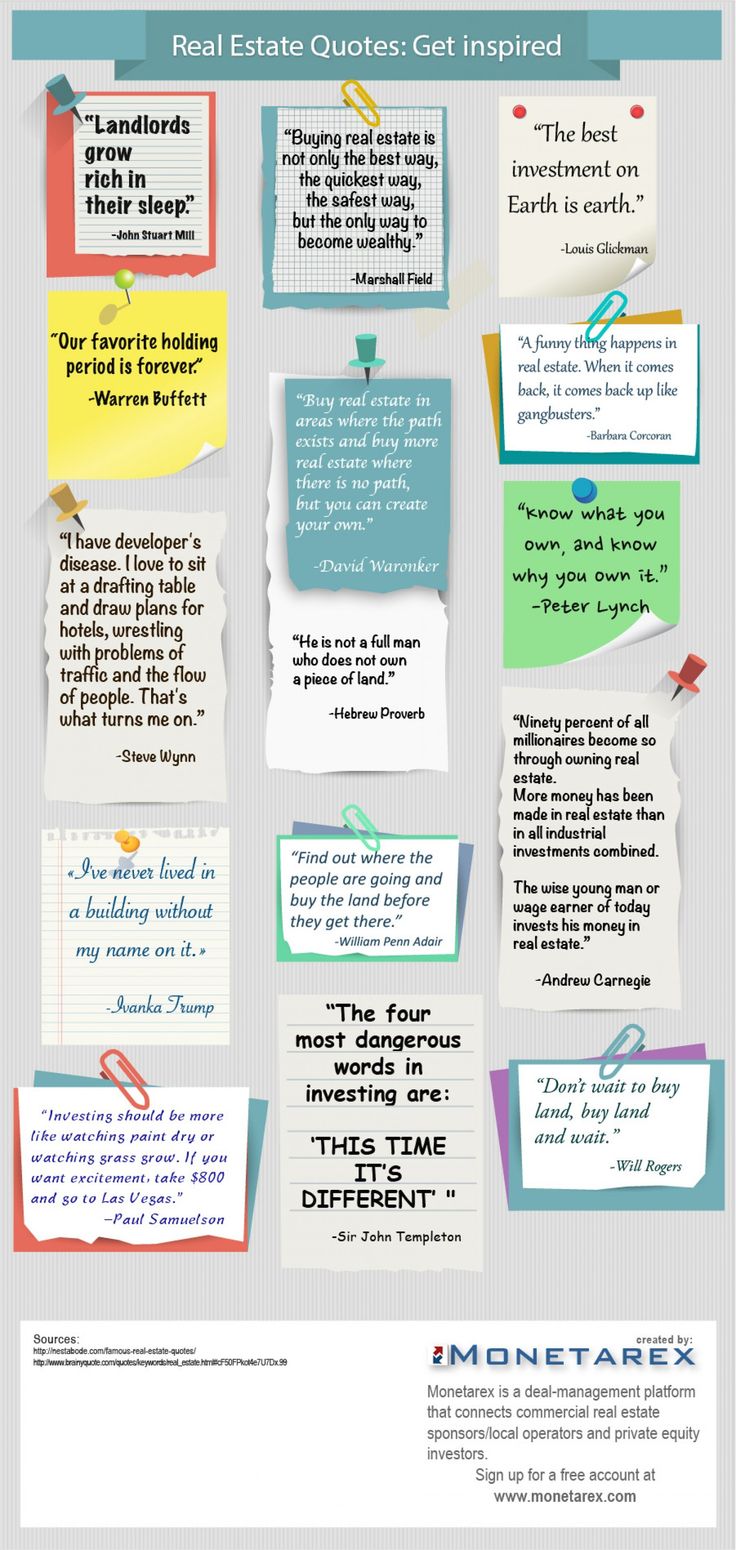 Real Estate Quotes: Get inspired
“Landlords
grow
rich in
their sleep.”
-John Stuart Mill
“Buying real estate is
not only the best way,
the quickest way,
the safest way,
but the only way to
become wealthy.”
-Marshall Field
“The best
investment on
Earth is earth.”
-Louis Glickman
“Our favorite holding
period is forever.”
-Warren Buffett
“Buy real estate in
areas where the path
exists and buy more
real estate where
there is no path,
but you can create
your own.”
-David Waronker
“A funny thing happens in
real estate. When it comes
back, it comes back up like
gangbusters.”
-Barbara Corcoran
“I have developer's
disease. I love to sit
at a drafting table
and draw plans for
hotels, wrestling
with problems of
traffic and the flow
of people. That's
what turns me on.”
-Steve Wynn
“He is not a full man
who does not own
a piece of land.”
-Hebrew Proverb
“Know what you
own, and know
why you own it.”
-Peter Lynch
“Ninety percent of all
millionaires become so
through owning real
estate.
More money has been
made in real estate than
in all industrial
investments combined.
The wise young man or
wage earner of today
invests his money in
real estate.”
-Andrew Carnegie
«I've never lived in
a building without
my name on it.»
-Ivanka Trump
“Find out where the
people are going and
buy the land before
they get there.”
-William Penn Adair
“Investing should be more
like watching paint dry or
watching grass grow. If you
want excitement, take $800
and go to Las Vegas.”
—Paul Samuelson
“The four
most dangerous
words in
investing are:
‘THIS TIME
IT’S
DIFFERENT’ "
-Sir John Templeton
“Don’t wait to buy
land, buy land
and wait.”
-Will Rogers
Sources:
http://nestabode.com/famous-real-estate-quotes/
http://www.brainyquote.com/quotes/keywords/real_estate.html#cF50FPkot4e7U7Dx.99
created by:
MONETAREX
Monetarex is a deal-management platform
that connects commercial real estate
sponsors/local operators and private equity
investors.
Sign up for a free account at
www.monetarex.com